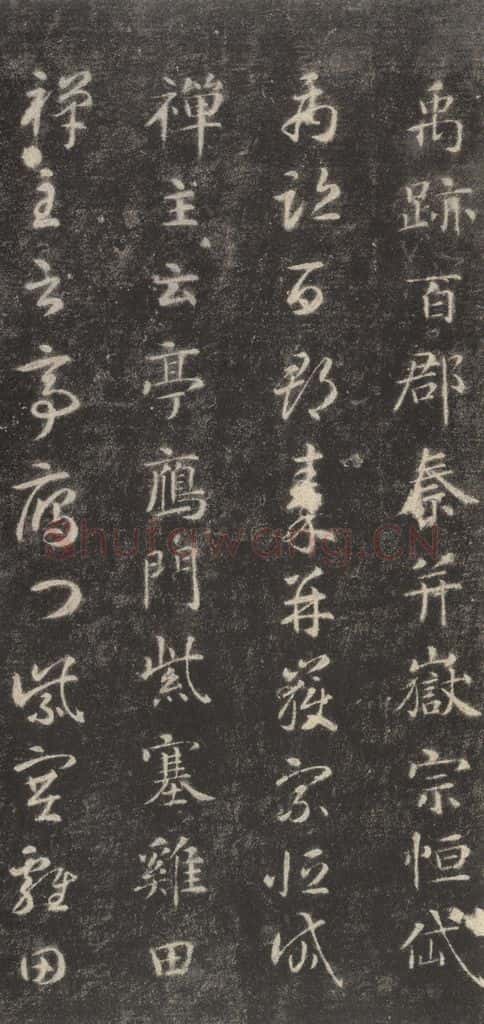 禹跡百郡秦并嶽宗恒岱
禹跡百郡秦并嶽宗恒岱
禪主云亭鴈門紫塞雞田
禪主云亭鴈門紫塞雞田
Shufawang.CN